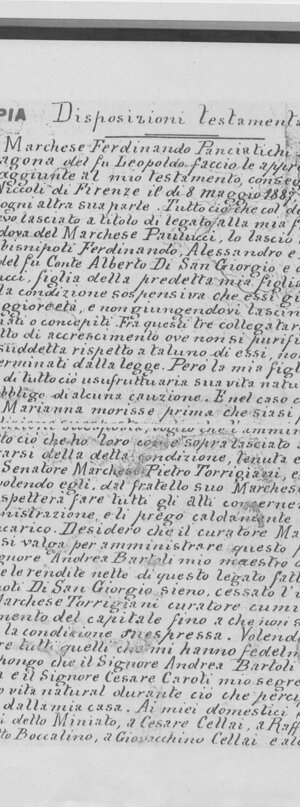 PIA Disposizioni testamenta
Marchese Ferdinando Panciatichi
agona del fu Leopoldo faccio le appr
aggiunte al mio testamento, conseg
Niccoli di Firenze il dì 8 maggio
ogni altra sua parte. Tutto ciò che col d
evo lasciato a titolo di legato alla mia f
dova del Marchese Paulucci, lo lascio
bisnipoti Ferdinando, Alessandro e
del fu Conte Alberto Di San Giorgio e
cci figlia della predetta mia figlia
la condizione sospensiva che essi gi
aggiore età, e non giungendovi lascin
nati o concepiti. Fra questi tre collegatar
tto di accrescimento ove non si purifi
suddetta rispetto a taluno di essi, no
erminati dalla legge. Però la mia figl
di tutto ciò usufruttuaria sua vita natu
obbligo di alcuna cauzione. E nel caso
Marianna morisse prima che siasi
to ciò che ho loro come sopra lasciato
arsi della detta condizione, tenuta e
Senatore Marchese Pietro Torrigiani, e
volendo egli, dal fratello suo Marchese
spetterà fare tutti gli atti concernen
nistrazione, e li prego caldamente
carico. Desidero che il curatore Ma
si valga per amministrare questo
gnore Andrea Bartoli mio maestro
le rendite nette di questo legato fatt
poti Di San Giorgio sieno, cessato l'
Marchese Torrigiani curatore cumu
mento del capitale fino a che non s
la condizione suespressa. Volendo
re tutti quelli che mi hanno fedelm
pongo che il Signore Andrea Bartoli
a e il Signore Cesare Caroli mio segre
o vita natural durante ciò che percep
dalla mia casa. Ai miei domestici
i dello Miniato, a Cesare Cellai, a Raff
Boccalino, a Giovacchino Cellai e al